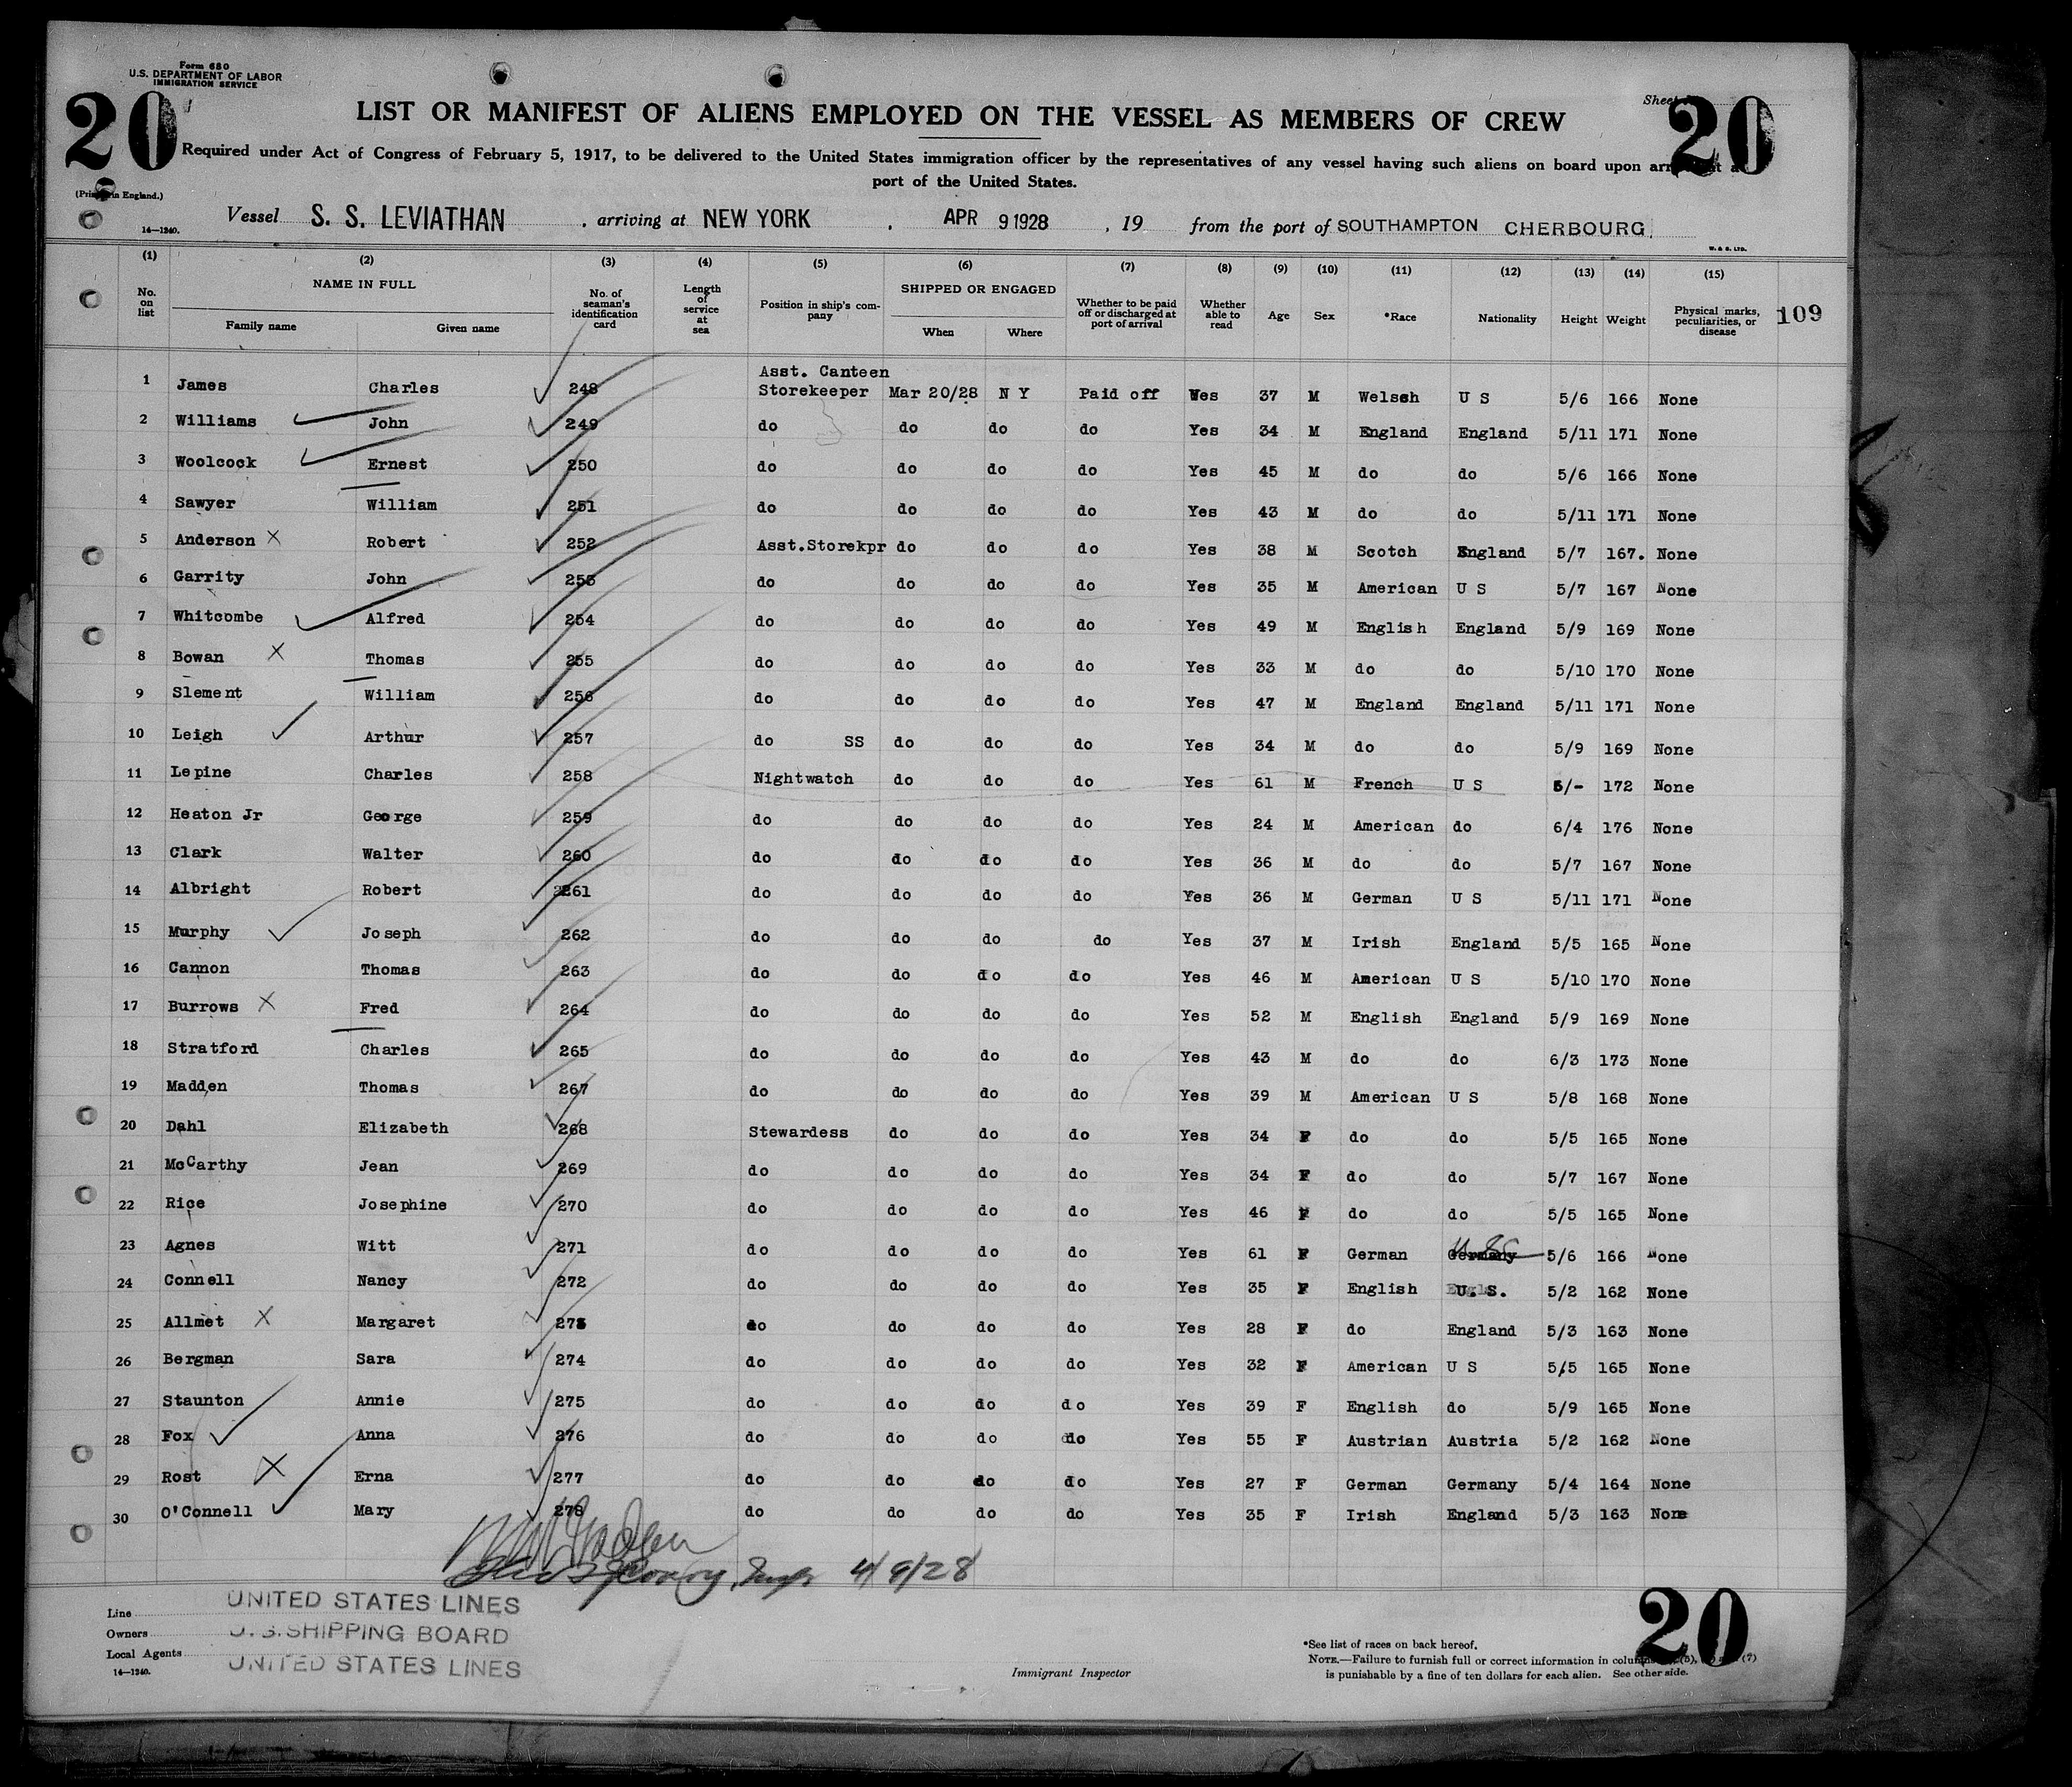 Form 680
U.S. DEPARTMENT OF LABOR
IMMIGRATION SERVICE
20
Sheet
20
LIST OR MANIFEST OF ALIENS EMPLOYED ON THE VESSEL AS MEMBERS OF CREW
Required under Act of Congress of February 5, 1917, to be delivered to the United States immigration officer by the representatives of any vessel having such aliens on board upon
port of the United States.
in England.)
14—1240.
Vessel S. S. LEVIATHAN , arriving at NEW YORK , APR 9 1928 , 19 from the port of SOUTHAMPTON CHERBOURG.
W. & S. LTD.
(1) (2) (3) (4) (5) (6) (7) (8) (9) (10) (11) (12) (13) (14) (15)
No. on list NAME IN FULL Family name Given name No. of seaman's identification card Length of service at sea Position in ship's company SHIPPED OR ENGAGED When Where Whether to be paid off or discharged at port of arrival Whether able to read Age Sex *Race Nationality Height Weight Physical marks, peculiarities, or disease 109
Asst. Canteen
1 James Charles 248 Storekeeper Mar 20/28 N Y Paid off Yes 37 M Welsch U S 5/6 166 None
2 Williams John 249 do do do do Yes 34 M England England 5/11 171 None
3 Woolcock Ernest 250 do do do do Yes 45 M do do 5/6 166 None
4 Sawyer William 251 do do do do Yes 43 M do do 5/11 171 None
5 Anderson X Robert 252 Asst.Storekpr do do do Yes 38 M Scotch England 5/7 167. None
6 Garrity John 253 do do do do Yes 35 M American U S 5/7 167 None
7 Whitcombe Alfred 254 do do do do Yes 49 M English England 5/9 169 None
8 Bowan X Thomas 255 do do do do Yes 33 M do do 5/10 170 None
9 Slement William 256 do do do do Yes 47 M England England 5/11 171 None
10 Leigh Arthur 257 do SS do do do Yes 34 M do do 5/9 169 None
11 Lepine Charles 258 Nightwatch do do do Yes 61 M French U S 5/- 172 None
12 Heaton Jr George 259 do do do do Yes 24 M American do 6/4 176 None
13 Clark Walter 260 do do do do Yes 36 M do do 5/7 167 None
14 Albright Robert 261 do do do do Yes 36 M German U S 5/11 171 None
15 Murphy Joseph 262 do do do do Yes 37 M Irish England 5/5 165 None
16 Cannon Thomas 263 do do do do Yes 46 M American U S 5/10 170 None
17 Burrows X Fred 264 do do do do Yes 52 M English England 5/9 169 None
18 Stratford Charles 265 do do do do Yes 43 M do do 6/3 173 None
19 Madden Thomas 267 do do do do Yes 39 M American U S 5/8 168 None
20 Dahl Elizabeth 268 Stewardess do do do Yes 34 F do do 5/5 165 None
21 McCarthy Jean 269 do do do do Yes 34 F do do 5/7 167 None
22 Rice Josephine 270 do do do do Yes 46 F do do 5/5 165 None
23 Agnes Witt 271 do do do do Yes 61 F German Germany 5/6 166 None
24 Connell Nancy 272 do do do do Yes 35 F English U. S. 5/2 162 None
25 Allmet X Margaret 273 do do do do Yes 28 F do England 5/3 163 None
26 Bergman Sara 274 do do do do Yes 32 F American U S 5/5 165 None
27 Staunton Annie 275 do do do do Yes 39 F English do 5/9 165 None
28 Fox Anna 276 do do do do Yes 55 F Austrian Austria 5/2 162 None
29 Rost X Erna 277 do do do do Yes 27 F German Germany 5/4 164 None
30 O'Connell Mary 278 do do do do Yes 35 F Irish England 5/3 163 None
4/9/28
Line UNITED STATES LINES
Owners U. S. SHIPPING BOARD
Local Agents UNITED STATES LINES
14—1240.
Immigrant Inspector
20
*See list of races on back hereof.
NOTE.—Failure to furnish full or correct information in (5), (7)
is punishable by a fine of ten dollars for each alien. See other side.